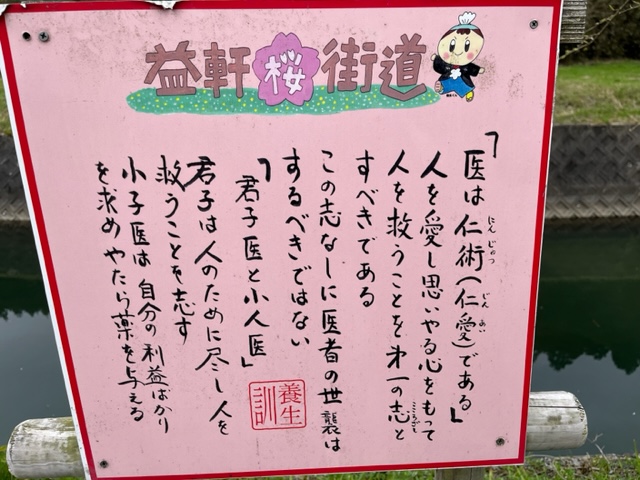 益軒桜街道
「医は仁術(仁愛)である」
にんじゅつ
じんあい
人を愛し思いやる心をもって
人を救うことを才一の志と
こころざし
すべきである
この志なしに医者の世襲は
するべきではない
「君子医と小人医」
君子は人のために尽し人を
救うことを志す
小子医は自分の利益ばかり
を求めやたら薬を与える
養生訓